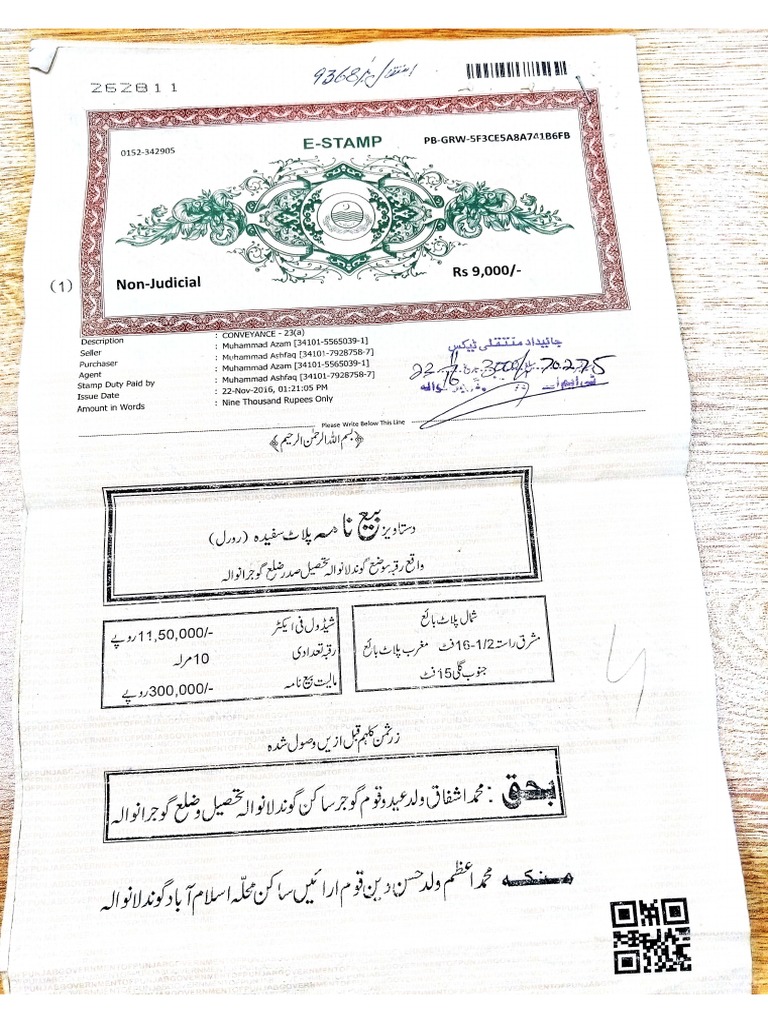 262811
انتقال نمبر 9368
0152-342905
E-STAMP
PB-GRW-5F3CE5A8A741B6FB
(1)
Non-Judicial
Rs 9,000/-
Description : CONVEYANCE - 23(a)
Seller : Muhammad Azam [34101-5565039-1]
Purchaser : Muhammad Ashfaq [34101-7928758-7]
Agent : Muhammad Azam [34101-5565039-1]
Stamp Duty Paid by : Muhammad Ashfaq [34101-7928758-7]
Issue Date : 22-Nov-2016, 01:21:05 PM
Amount in Words : Nine Thousand Rupees Only
جائیداد منتقلی ٹیکس
Please Write Below This Line
بسم اللہ الرحمٰن الرحیم
دستاویز بیع نامہ پلاٹ سفیدہ (رورل)
واقع رقبہ موضع گوندلانوالہ تحصیل صدر ضلع گوجرانوالہ
شمال پلاٹ بائع
مشرق راستہ 16-1/2 فٹ مغرب پلاٹ بائع
جنوب گلی 15 فٹ
شیڈول فی ایکٹر 11,50,000/- روپے
رقبہ تعدادی 10 مرلہ
مالیت بیع نامہ 300,000/- روپے
زرثمن کلہم قبل ازیں وصول شدہ
بحق : محمد اشفاق ولد عیدو قوم گوجر ساکن گوندلانوالہ تحصیل و ضلع گوجرانوالہ
منکہ محمد اعظم ولد حسن دین قوم ارائیں ساکن محلہ اسلام آباد گوندلانوالہ